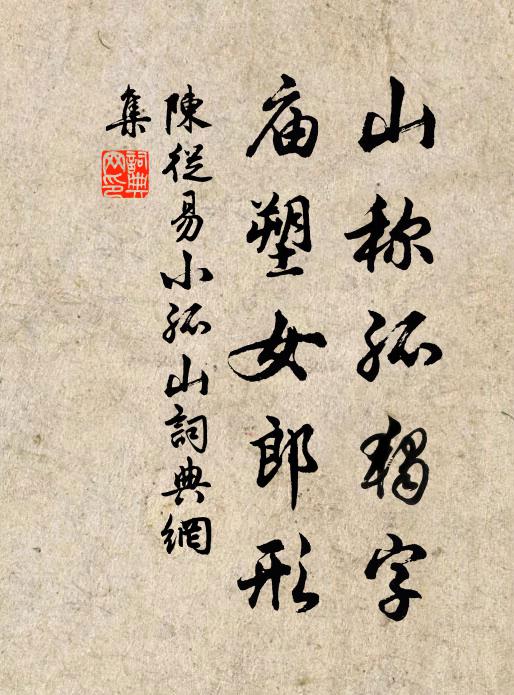 山称孤独字
庙塑女郎形
陳從易小孤山詞典網
集
詞典
网印